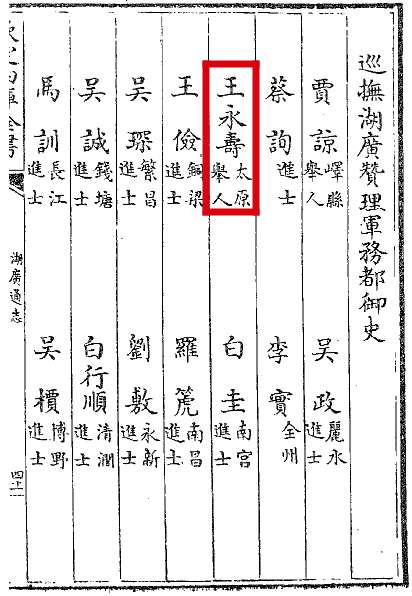 巡撫湖廣贊理軍務都御史
賈諒 嶧縣舉人 吳政 麗水進士
蔡詢 進士 李實 全州
王永壽 太原舉人 白圭 南宮進士
王儉 銅梁進士 羅篪 南昌進士
吳琛 繁昌進士 劉敷 永新進士
吳誠 錢塘進士 白行順 清澗進士
馬訓 長江進士 吳 博野進士
欽定四庫全書
湖廣通志